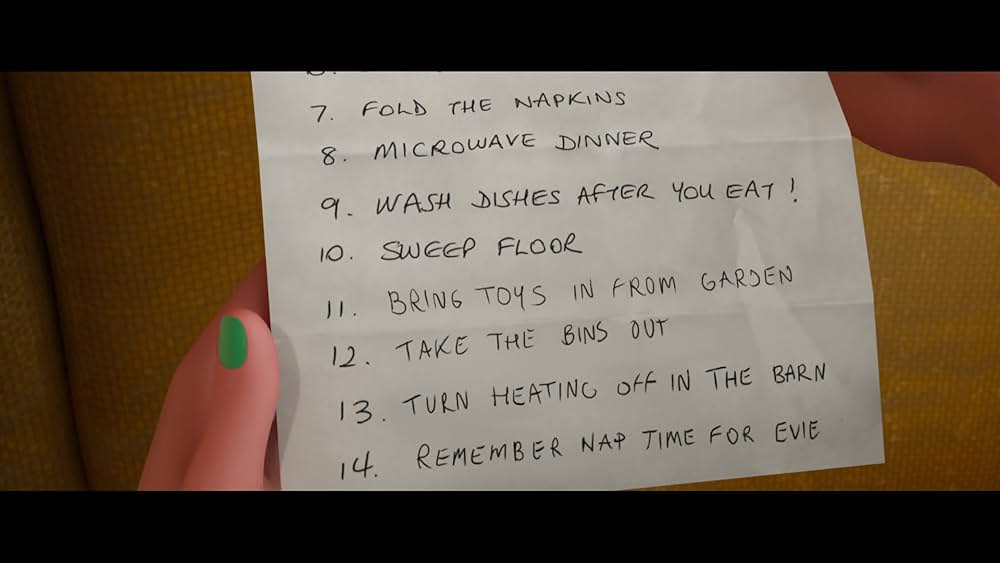 7. FOLD THE NAPKINS
8. MICROWAVE DINNER
9. WASH DISHES AFTER YOU EAT!
10. SWEEP FLOOR
11. BRING TOYS IN FROM GARDEN
12. TAKE THE BINS OUT
13. TURN HEATING OFF IN THE BARN
14. REMEMBER NAP TIME FOR EVIE